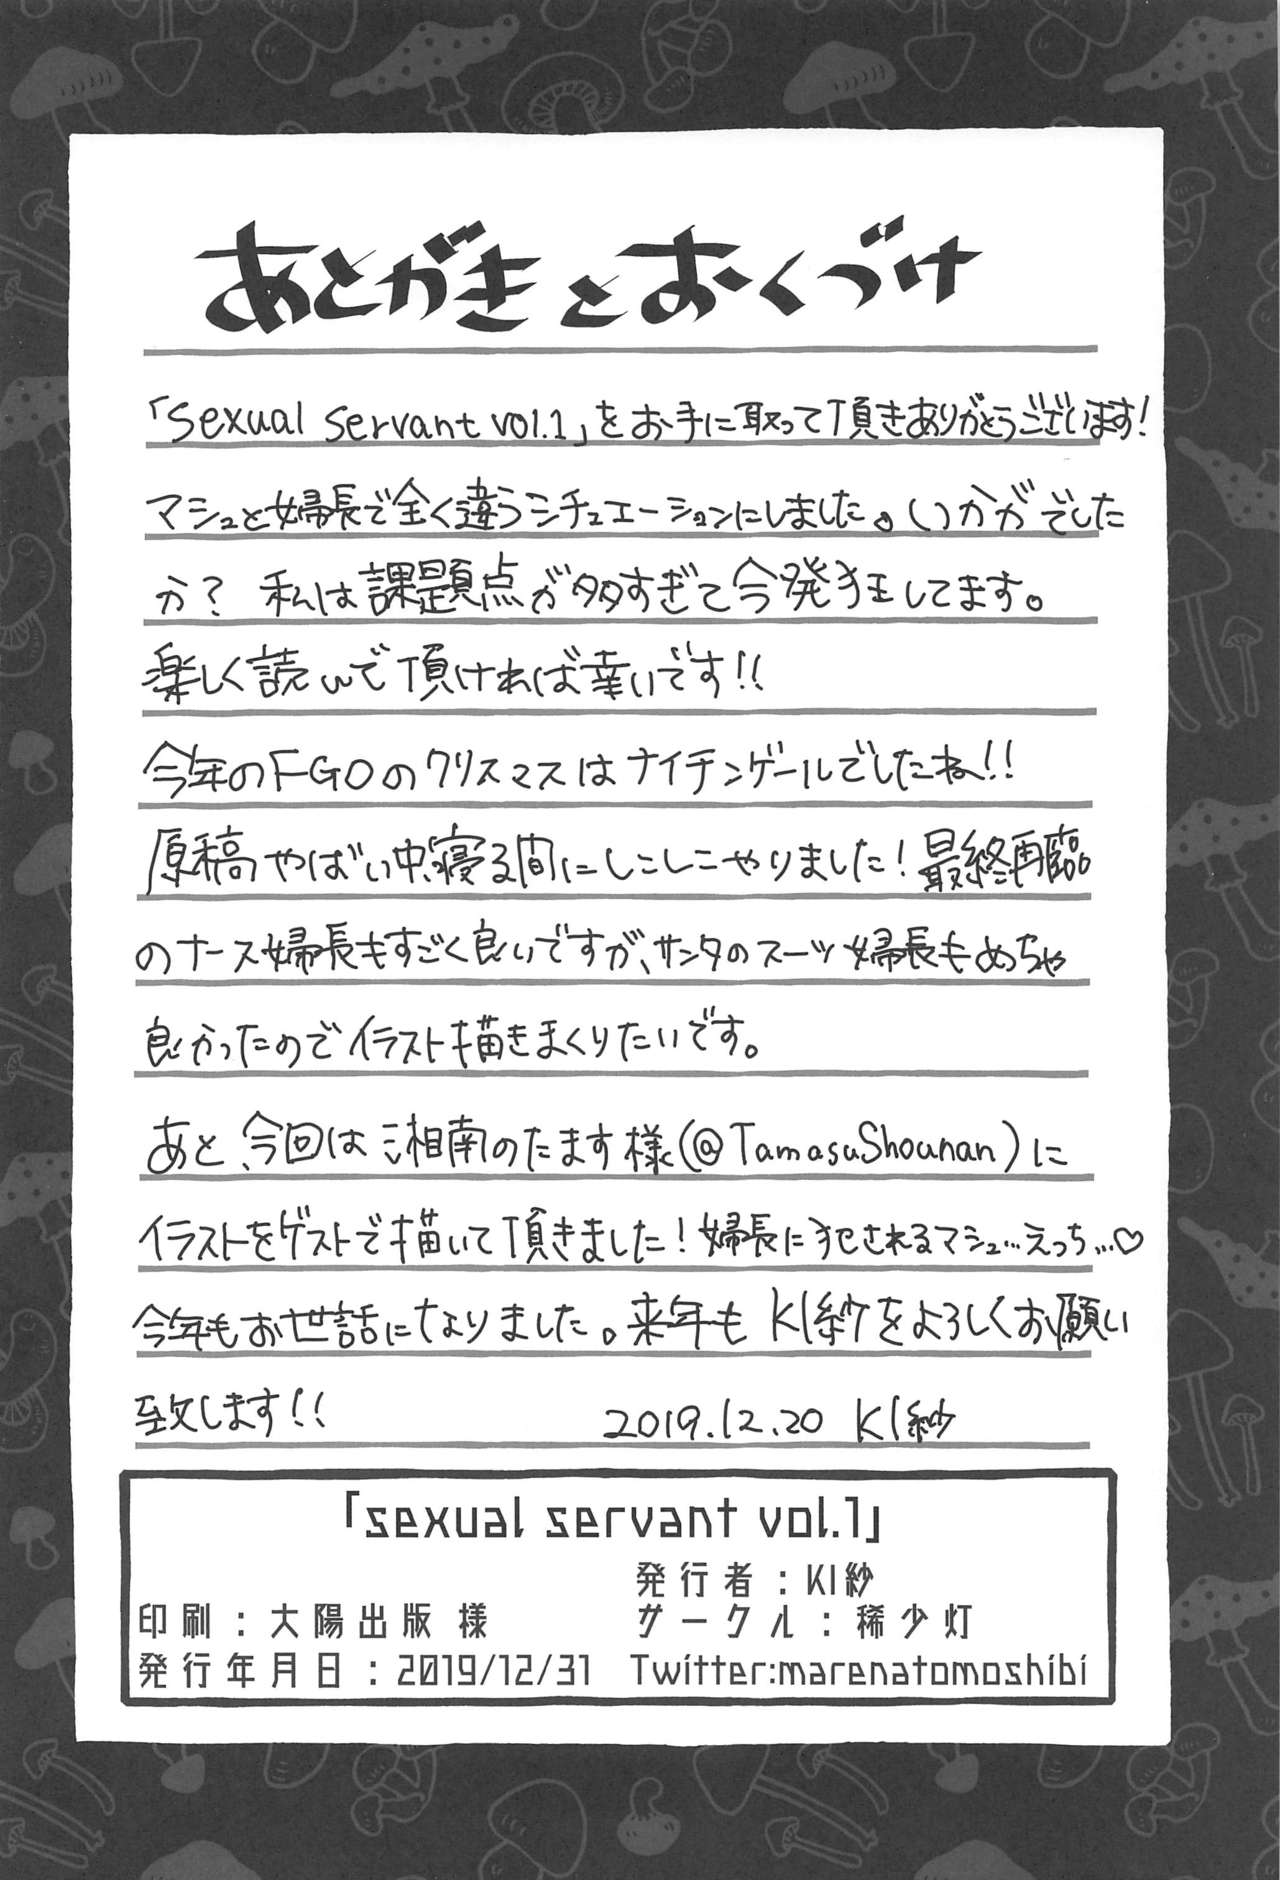 あとがきとおくづけ
「sexual servant vol.1」をお手に取って頂きありがとうございます!
マシュと婦長で全く違うシチュエーションにしました。いかがでした
か? 私は課題点が多すぎて今発狂してます。
楽しく読んで頂ければ幸いです!!
今年のFGOのクリスマスはナイチンゲールでしたね!!
原稿やばい中、寝る間にしこしこやりました!最終再臨
のナース婦長もすごく良いですが、サンタのスーツ婦長もめっちゃ
良かったのでイラスト描きまくりたいです。
あと、今回は湘南のたます様(@TamasuShounan)に
イラストをゲストで描いて頂きました!婦長に犯されるマシュ…えっち…♡
今年もお世話になりました。来年も KI紗をよろしくお願い
致します!!
2019.12.20 KI紗
「sexual servant vol.1」
発行者:KI紗
印刷:大陽出版 様
サークル:稀少灯
発行年月日:2019/12/31
Twitter:marenatomoshibi